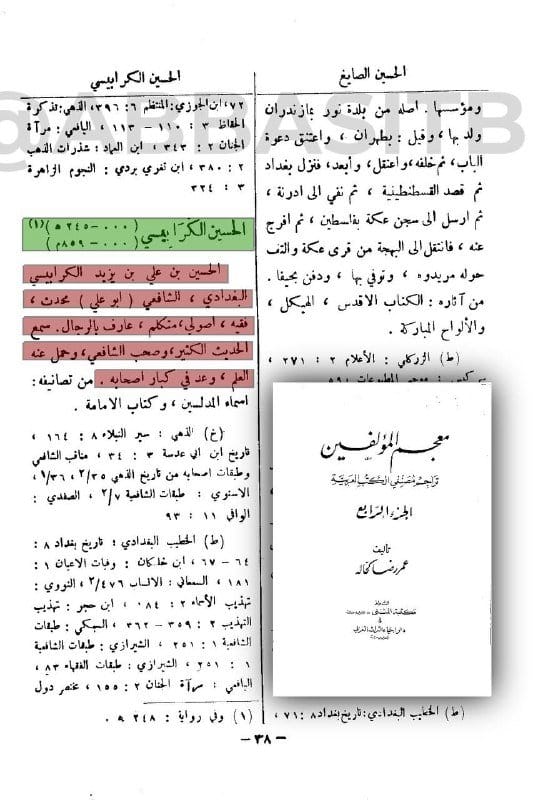 الحسين الصايغ
الحسين الكرابيسي
ومؤسسها . اصله من بلدة نور بمازندران
ولد بها ، وقيل : بطهران ، واعتنق دعوة
الباب ، ثم خلفه ، واعتقل ، وأبعد ، فنزل بغداد
ثم قصد القسطنطينية ، ثم نفي الى ادرنة ،
ثم ارسل الى سجن عكة بفلسطين ، ثم افرج
عنه ، فانتقل الى البهجة من قرى عكة والتف
حوله مريدوه ، وتوفي بها ، ودفن بحيفا .
من آثاره : الكتاب الاقدس ، الهيكل ،
والألواح المباركة .
(ط) الزركلي : الأعلام ٢ : ٢٧١ ،
معجم المؤلفين
تراجم مصنفي الكتب العربية
الجزء الرابع
تأليف
عمر رضا كحاله
(ط) الخطيب البغدادي : تاريخ بغداد ٨ : ٧١ ،
٧٢ ، ابن الجوزي : المنتظم ٦ : ٣٩٦ ، الذهبي : تذكرة
الحفاظ ٣ : ١١٠ – ١١٣ ، اليافعي : مرآة
الجنان ٢ : ٣٤٣ ، ابن العماد : شذرات الذهب
٢ : ٣٨٠ ، ابن تغري بردي : النجوم الزاهرة
٣ : ٣٢٤
الحسين الكرابيسي (٠٠٠ – ٢٤٥ ه) (١)
(٠٠٠ – ٨٥٩ م)
الحسين بن علي بن يزيد الكرابيسي
البغدادي ، الشافعي ( ابو علي ) محدث ،
فقيه ، أصولي ، متكلم ، عارف بالرجال . سمع
الحديث الكثير ، وصحب الشافعي ، وحمل عنه
العلم ، وعد في كبار اصحابه . من تصانيفه :
اسماء المدلسين ، وكتاب الامامة .
(خ) الذهبي : سير النبلاء ٨ : ١٦٤ ،
تاريخ ابن ابي عدسة ٣ : ٣٤ ، مناقب الشافعي
وطبقات اصحابه من تاريخ الذهبي ٢/٣٥ ، ١/٣٦ ،
الاسنوي : طبقات الشافعية ٢/٧ ، الصفدي :
الوافي ١١ : ٩٣
(ط) الخطيب البغدادي : تاريخ بغداد ٨ :
٦٤ – ٦٧ ، ابن خلكان : وفيات الاعيان ١ :
١٨١ ، السمعاني : الانساب ٢/٤٧٦ ، النووي :
تهذيب الأسماء ٢ : ١٨٤ ، ابن حجر : تهذيب
التهذيب ٢ : ٣٥٩ – ٣٦٢ ، السبكي : طبقات
الشافعية ١ : ٢٥١ ، الشيرازي : طبقات الشافعية
١ : ٢٥١ ، الشيرازي : طبقات الفقهاء ٨٣ ،
اليافعي : مرآة الجنان ٢ : ١٥٥ ، مختصر دول
(١) وفي رواية : ٢٤٨ ه .
– ٣٨ –